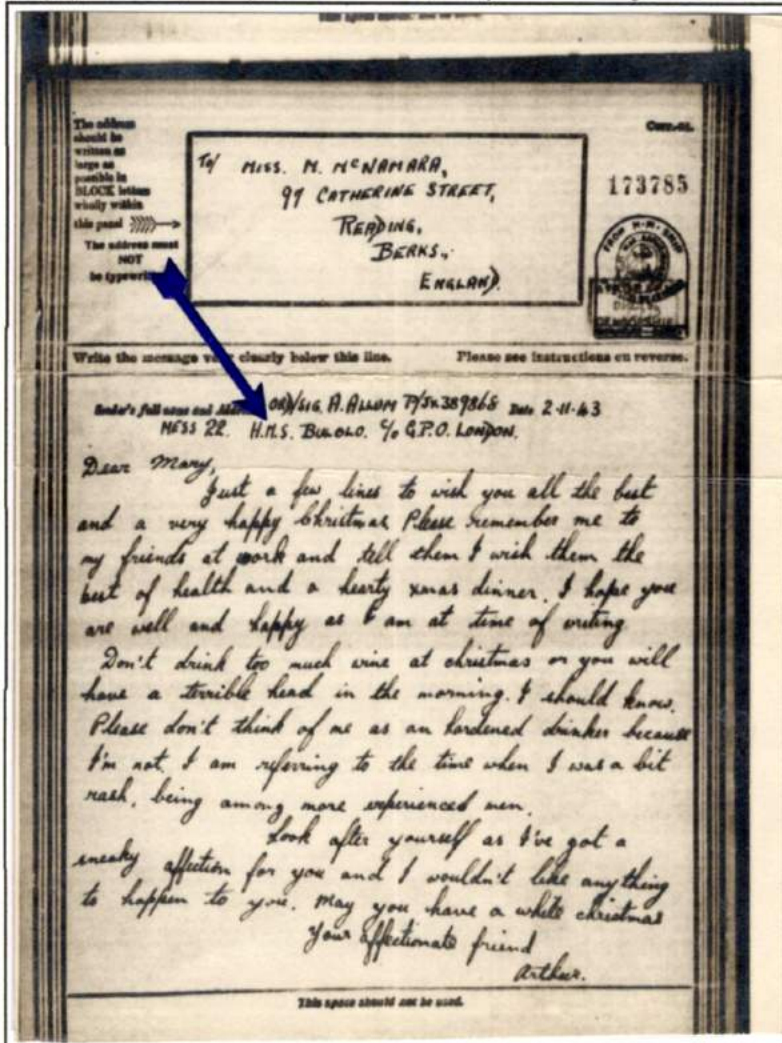 The address
should be
written as
large as
possible in
BLOCK letters
wholly within
this panel
The address must
NOT
be
To/ MISS. M. McNAMARA,
97 CATHERINE STREET,
READING,
BERKS,.
ENGLAND.
173785
FROM H.M. SHIP
Write the message very clearly below this line.
Please see instructions on reverse.
Sender's full name and ORD/SIG. A. ALLOM P/JX389868 Date 2-11-43
MESS 22. H.M.S. BULOLO. C/o G.P.O. LONDON.
Dear Mary,
Just a few lines to wish you all the best
and a very happy Christmas Please remember me to
my friends at work and tell them I wish them the
best of health and a hearty xmas dinner. I hope you
are well and happy as I am at time of writing
Don't drink too much wine at christmas or you will
have a terrible head in the morning. I should know.
Please don't think of me as an hardened drinker because
I'm not. I am referring to the time when I was a bit
rash, being among more experienced men.
Look after yourself as I've got a
sneaky affection for you and I wouldn't like anything
to happen to you. May you have a white christmas
Your affectionate friend
Arthur.
This space should not be used.